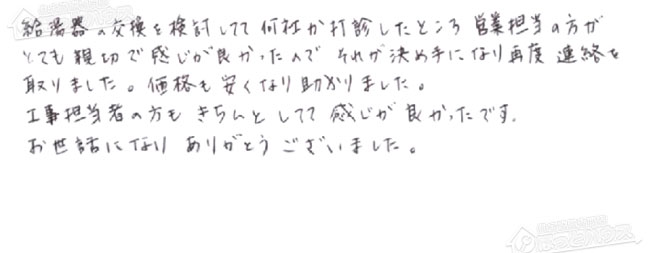 給湯器の交換を検討してて何社か打診したところ営業担当の方が
とても親切で感じが良かったのでそれが決め手になり再度連絡を
取りました。価格も安くなり助かりました。
工事担当者の方もきちんとしてて感じが良かったです。
お世話になりありがとうございました。